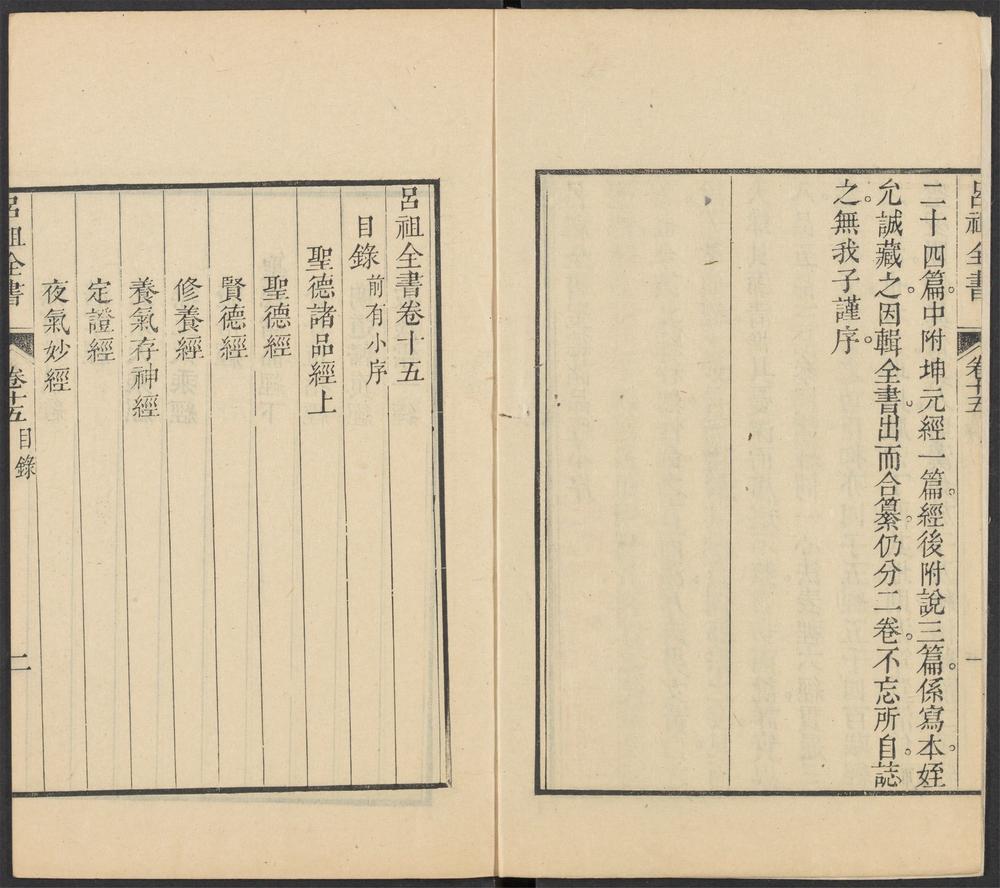 呂祖全書
卷十五
一
二十四篇中附坤元經一篇。經後附說三篇。係寫本。姪
允誠藏之。因輯全書。出而合纂。仍分二卷。不忘所自誌
之。無我子謹序。
呂祖全書卷十五
目錄 前有小序
聖德諸品經上
聖德經
賢德經
修養經
養氣存神經
定證經
夜氣妙經
呂祖全書
卷十五 目錄
二